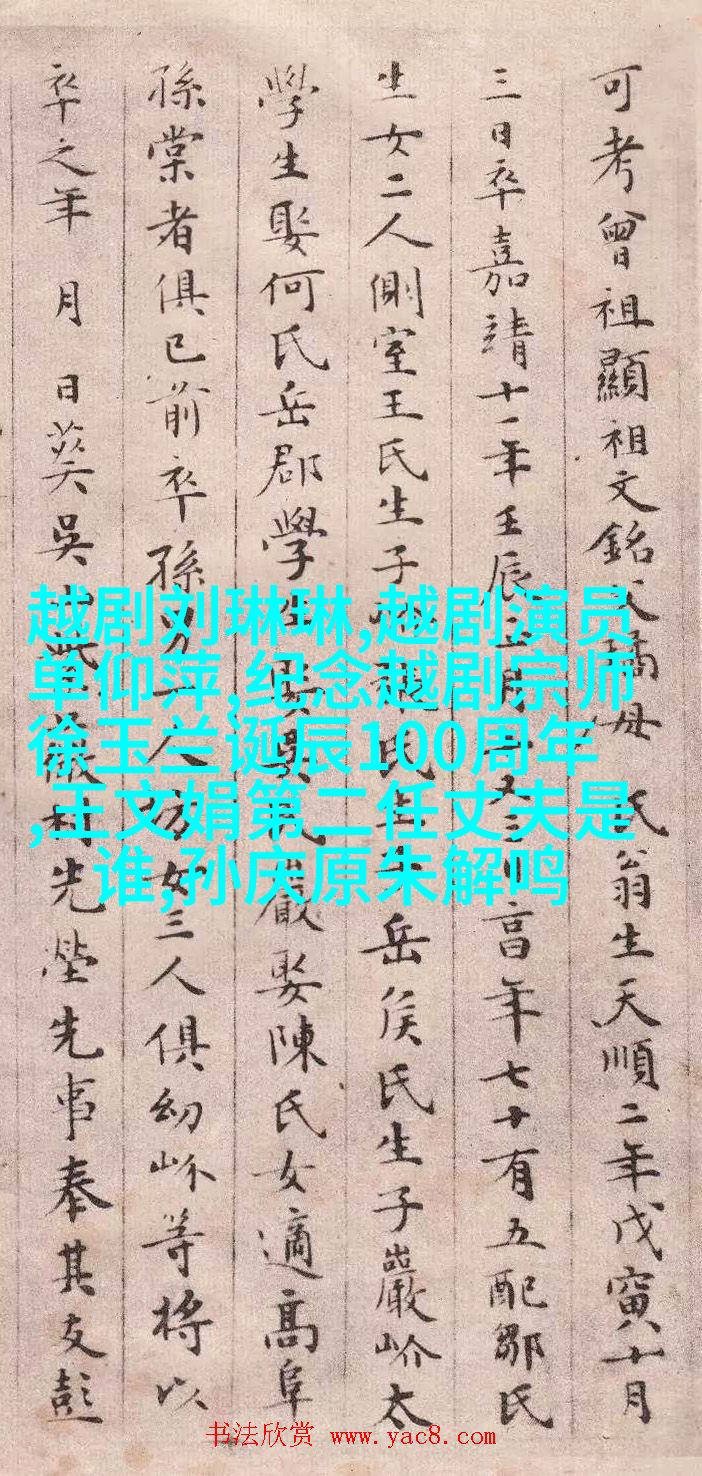 可考曾祖顯祖文銘父璚母 氏翁生天順二年戊寅十月
三日卒嘉靖十一年壬辰 月 又三日高年七十有五配鄒氏
生女二人側室王氏生子 趙氏生子岳侯氏生子巖岕太
學生娶何氏岳郡學生娶吳氏巖娶陳氏女適高阜
孫棠者俱已前卒孫男一人坊女三人俱幼岕等將以
卒之年 月 日葬吳 先塋先事奉其友彭
越剧刘琳琳,越剧演员
单仰萍,纪念越剧宗师
徐玉兰诞辰100周年
,王文娟第二任丈夫是
谁,孙庆原朱解鸣
书法欣赏 www.yac8.com